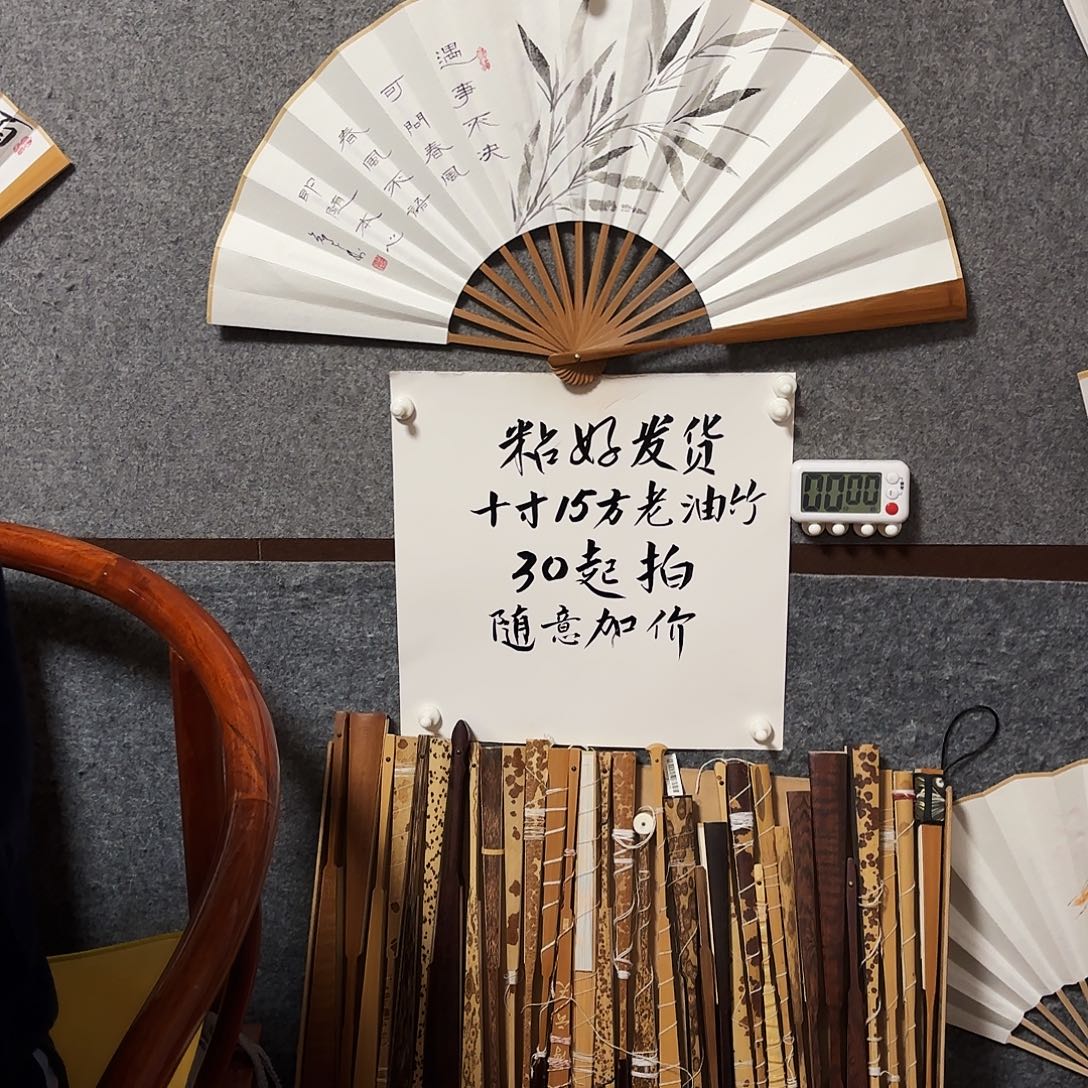 遇事不决
可問春風
春風不語
即随本心
粘好发货
十寸15方老油竹
30起拍
随意加价
00 00